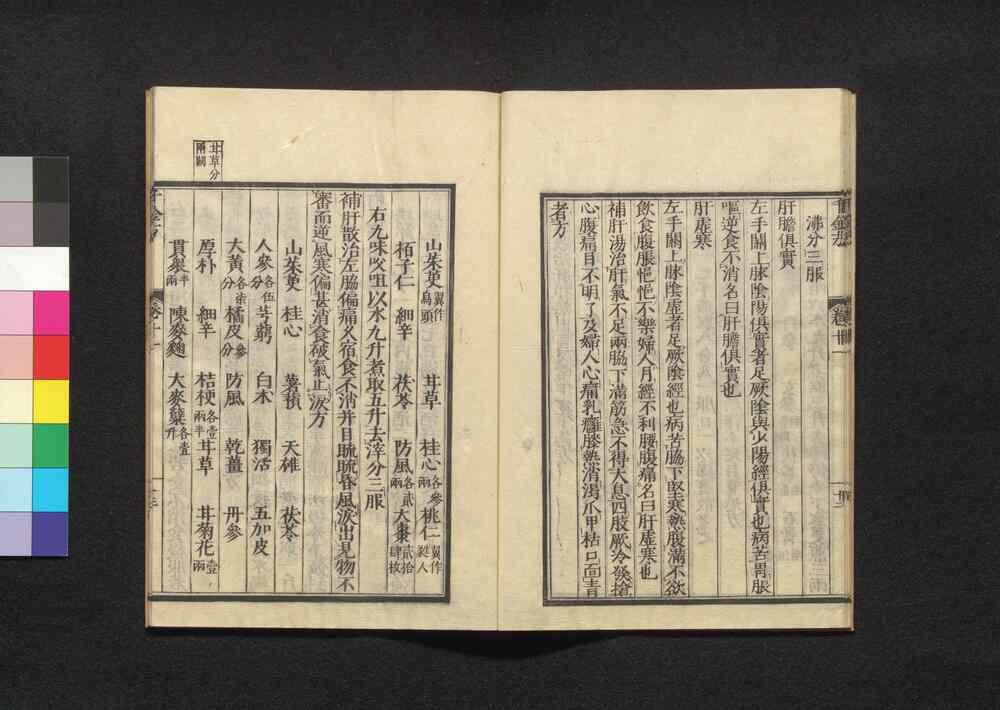 沸分三服
肝膽俱實
左手關上脉陰陽俱實者足厥陰與少陽經俱實也病苦胃脹
嘔逆食不消名曰肝膽俱實也
肝虛寒
左手關上脉陰虛者足厥陰經也病苦脇下堅寒熱腹滿不欲
飲食腹脹悒悒不樂婦人月經不利腰腹痛名曰肝虛寒也
補肝湯治肝氣不足兩脇下滿筋急不得大息四肢厥冷發搶
心腹痛目不明了及婦人心痛乳癰膝熱消渴爪甲枯口面青
者方
山茱萸翼作烏頭 甘草 桂心各參兩 桃仁翼作人
栢子仁 細辛 茯苓 防風各貳兩 大棗貳拾肆枚
右九味㕮咀以水九升煮取五升去滓分三服
補肝散治左脇偏痛久宿食不消并目䀮䀮昏風淚出見物不
審而逆風寒偏甚消食破氣止淚方
山茱萸 桂心 薯蕷 天雄 茯苓
人參各伍分 芎藭 白朮 獨活 五加皮
大黃各柒分 橘皮參分 防風 乾薑 丹參
厚朴 細辛 桔梗各壹兩半 甘草 甘菊花壹兩
貫衆半兩 陳麥麴 大麥糵各壹升
甘草分
兩闕